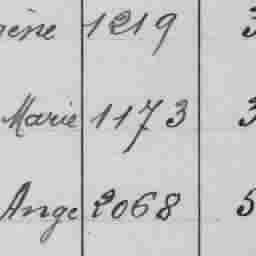 gène 1219 3
Marie 1173 3
Ange 2068 5